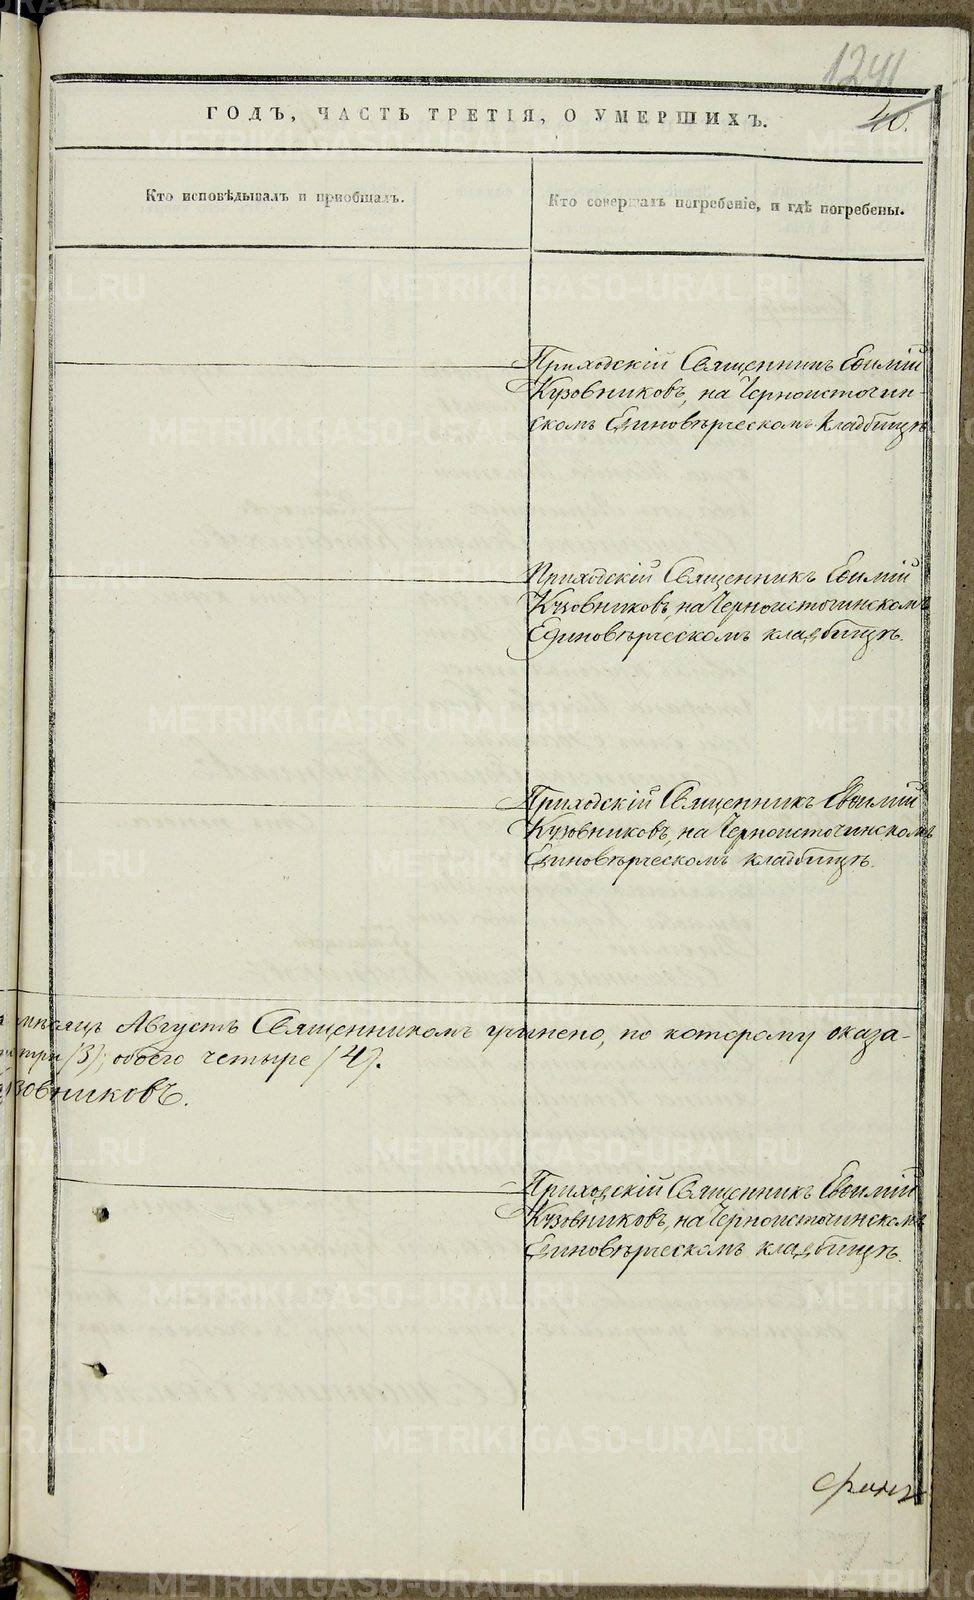 1241
40.
ГОДЪ, ЧАСТЬ ТРЕТІЯ, О УМЕРШИХЪ.
Кто исповѣдывалъ и пріобщалъ.
Кто совершалъ погребеніе, и гдѣ погребены.
Приходскій Священникъ Евѳимій
Кузовниковъ, на Черноисточин-
скомъ Единовѣрческомъ кладбищѣ.
Приходскій Священникъ Евѳимій
Кузовниковъ, на Черноисточинскомъ
Единовѣрческомъ кладбищѣ.
Приходскій Священникъ Евѳимій
Кузовниковъ, на Черноисточинскомъ
Единовѣрческомъ кладбищѣ.
мѣсяцъ Августъ Священникомъ учинено, по которому оказа-
три /3/; обоего четыре /4/.
зовниковъ.
Приходскій Священникъ Евѳимій
Кузовниковъ, на Черноисточинскомъ
Единовѣрческомъ кладбищѣ.
METRIKI.GASO-URAL.RU